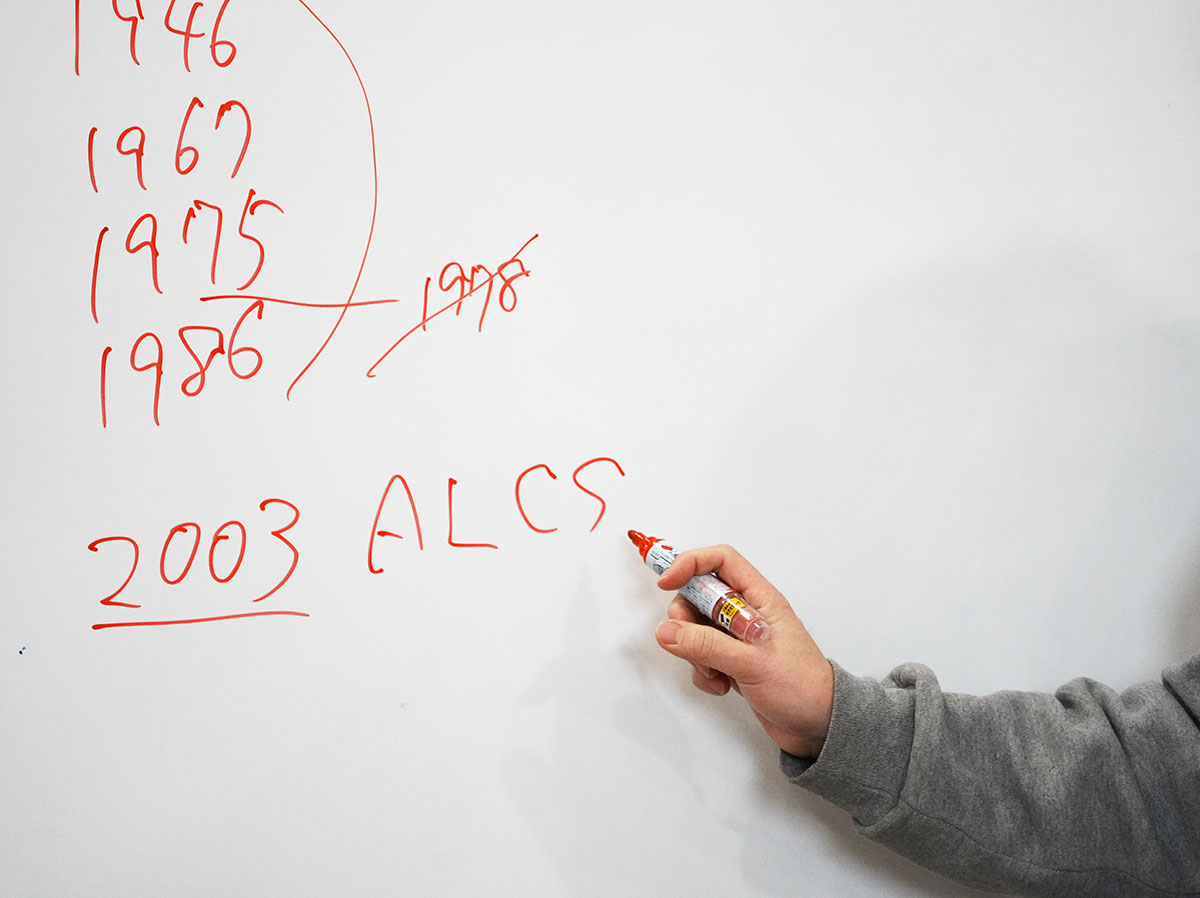 1946
1967
1975
1978
1986
2003 ALCS